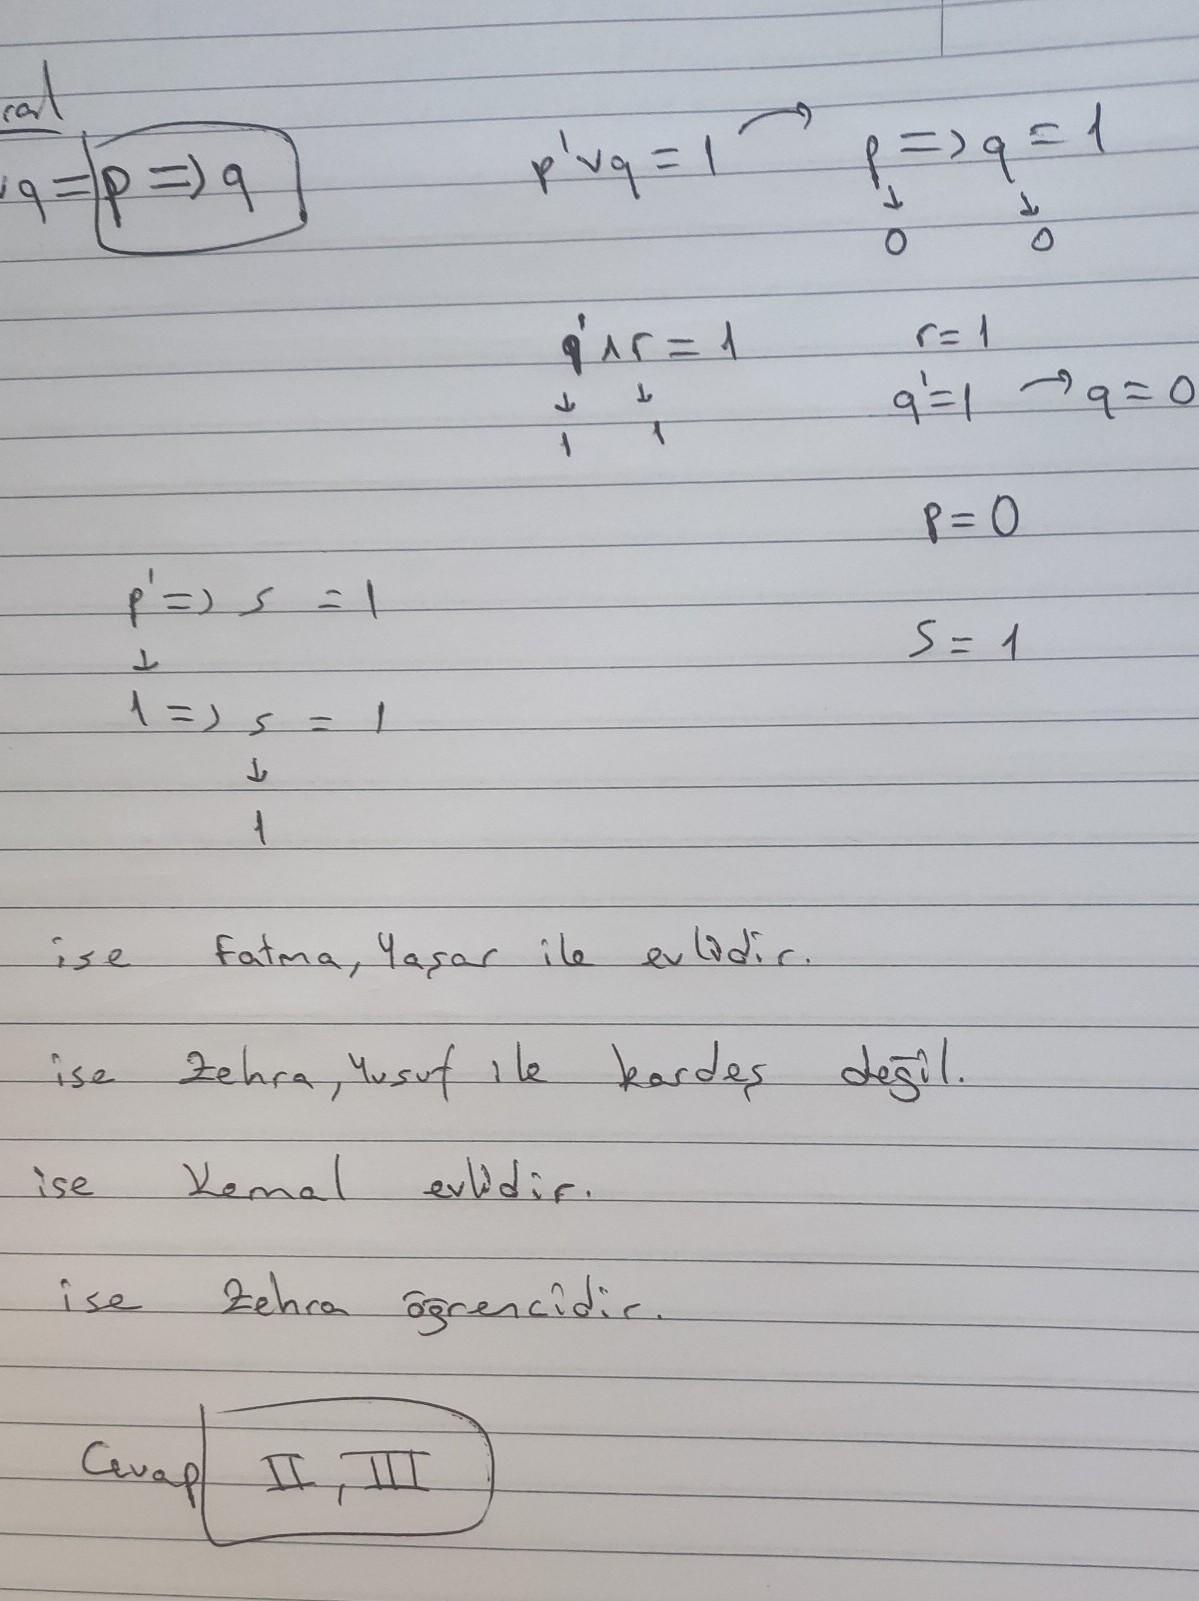 p'∨q = 1 → p => q = 1
q = p => q
↓ ↓
0 0
q'∧r = 1 r = 1
↓ ↓
1 1
q' = 1 → q = 0
p = 0
p' => s = 1
s = 1
↓
1 => s = 1
↓
1
ise Fatma, Yaşar ile evlidir.
ise Zehra, Yusuf ile kardeş değil.
ise Kemal evlidir.
ise Zehra öğrencidir.
Cevap II, III